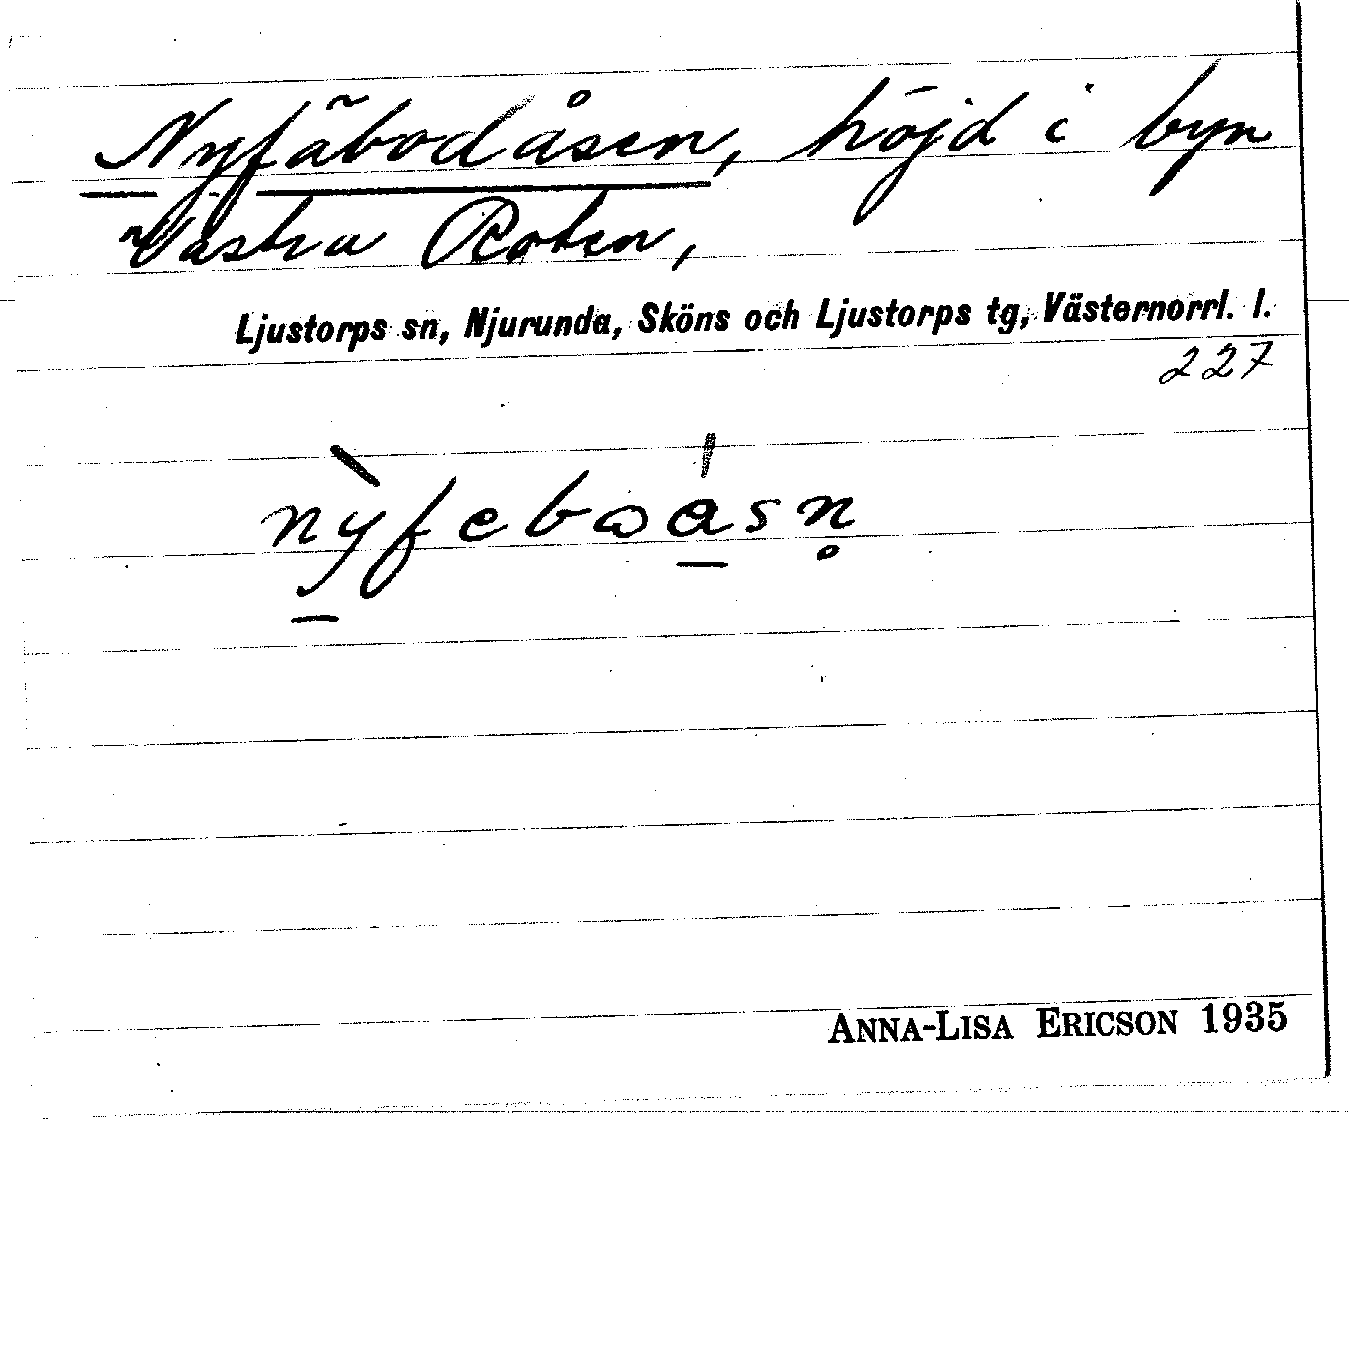 Nyfäbodåsen, höjd i byn
Västra Roten,
Ljustorps sn, Njurunda, Sköns och Ljustorps tg, Västernorrl. l.
227
Anna-Lisa Ericson 1935